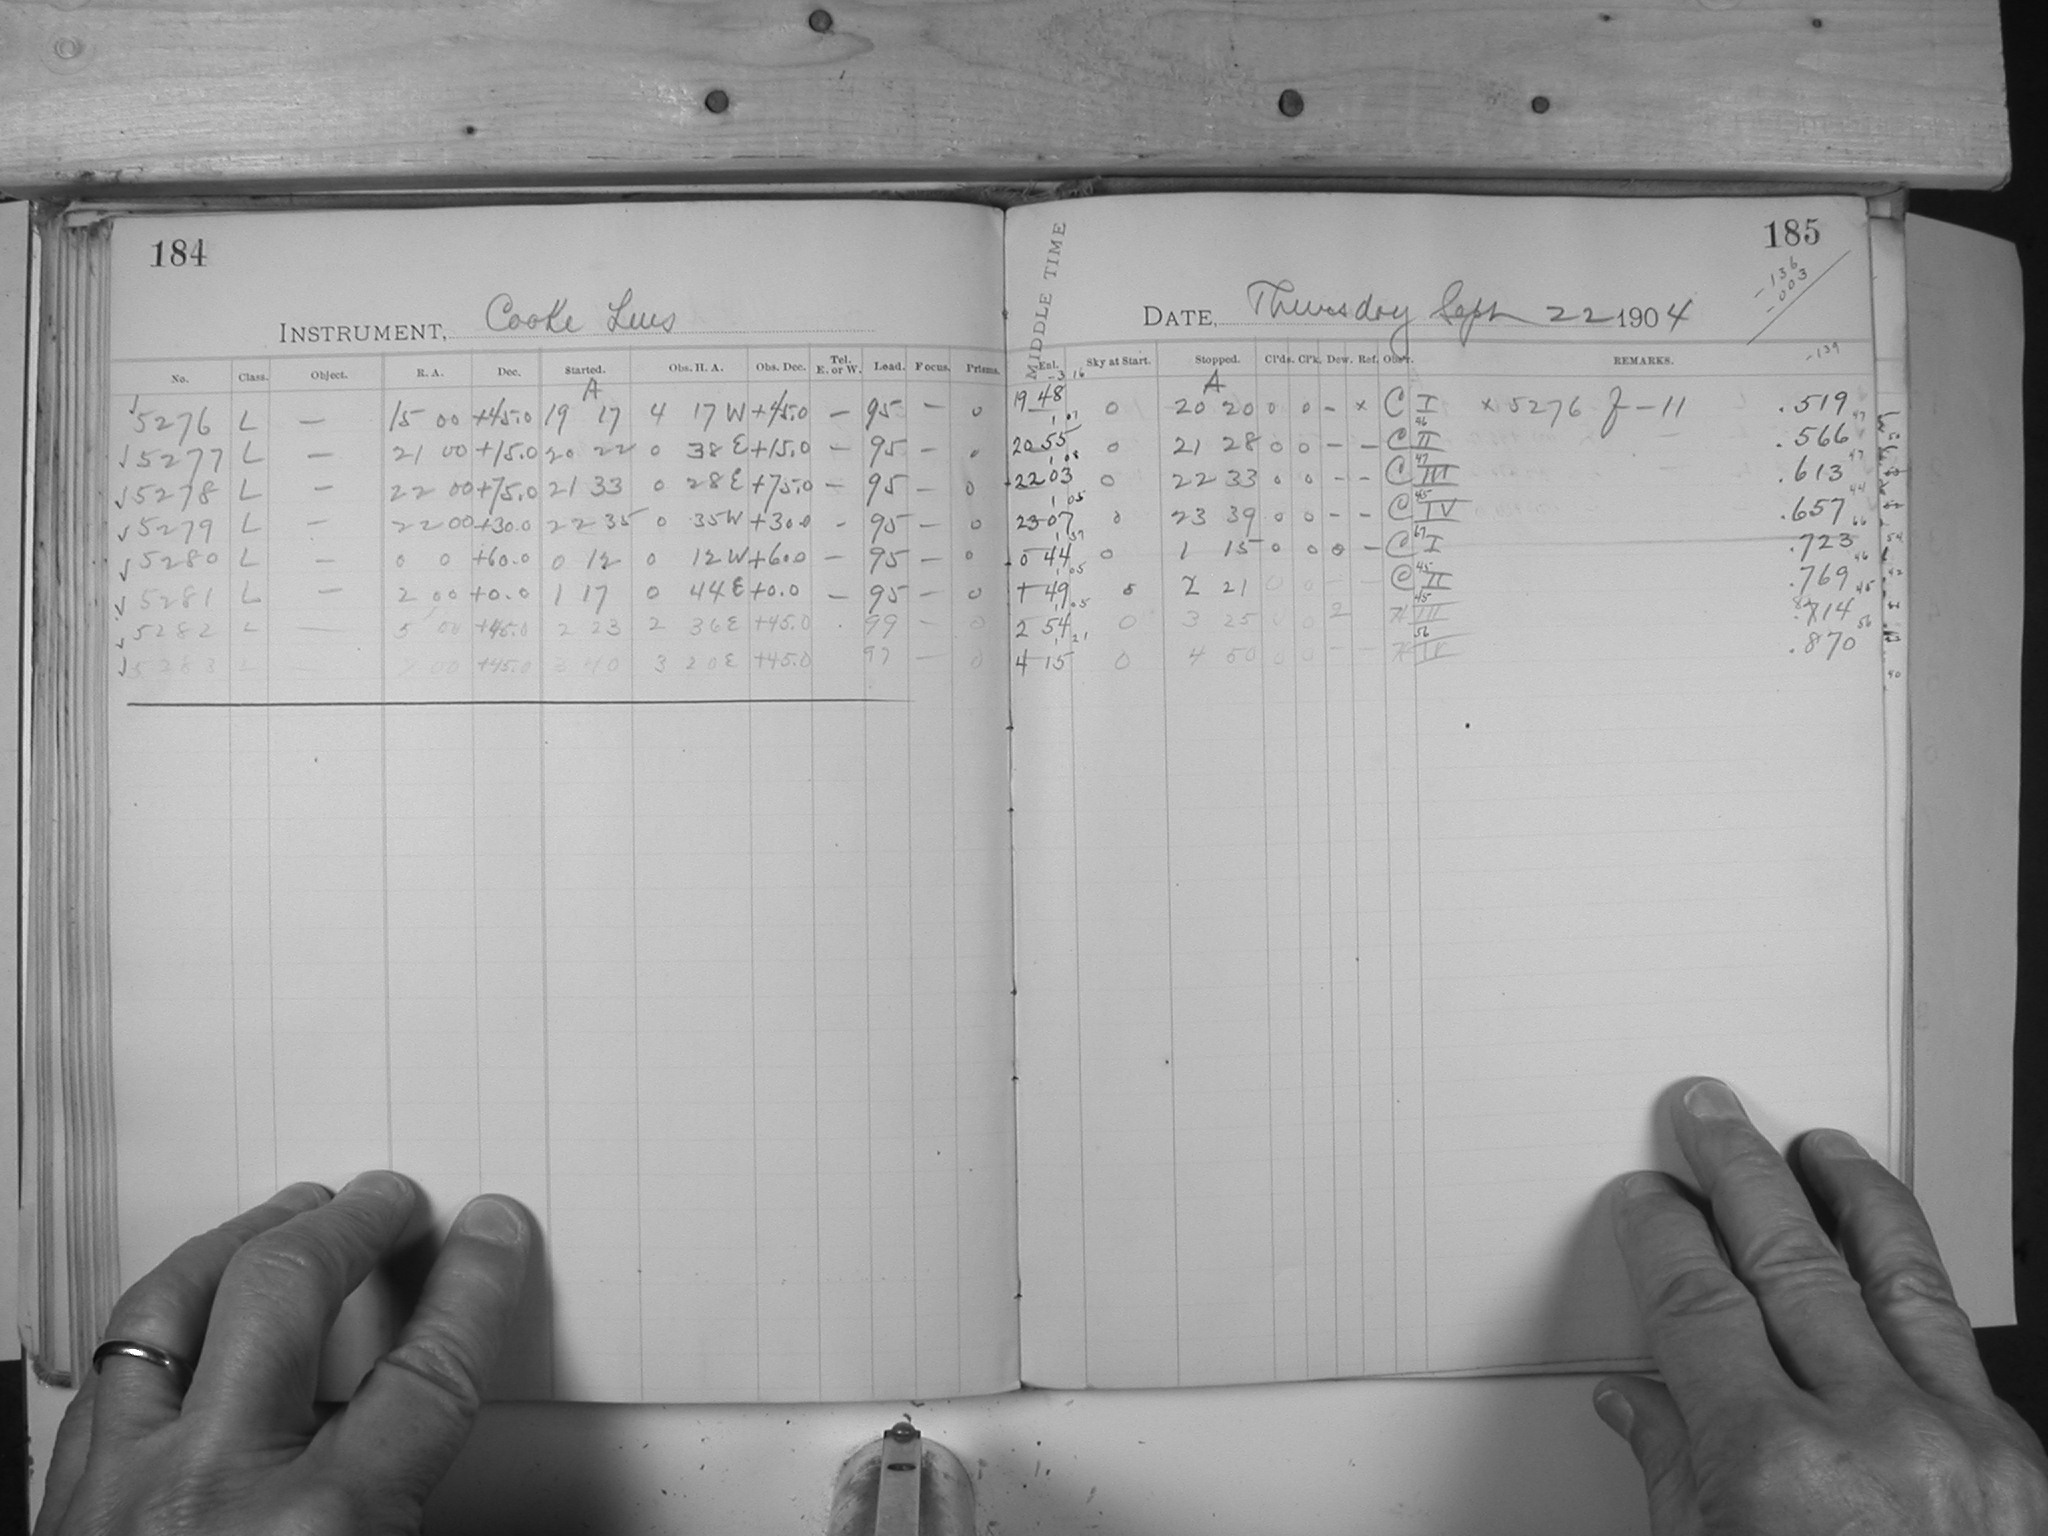 184
INSTRUMENT, Cooke Lens
No. Class. Object. R. A. Dec. Started. Obs. H. A. Obs. Dec. Tel. E. or W. Load. Focus. Prisms.
A
5276 L — 15 00 +45.0 19 17 4 17 W +45.0 — 95 — 0
5277 L — 21 00 +15.0 20 22 0 38 E +15.0 — 95 — 0
5278 L — 22 00 +75.0 21 33 0 28 E +75.0 — 95 — 0
5279 L — 22 00 +30.0 22 35 0 35 W +30.0 - 95 — 0
5280 L — 0 0 +60.0 0 12 0 12 W +60.0 — 95 — 0
5281 L — 2 00 +0.0 1 17 0 44 E +0.0 — 95 — 0
5282 L — 5 00 +45.0 2 23 2 36 E +45.0 99 — 0
5283 L — 7 00 +45.0 3 40 3 20 E +45.0 97 — 0
185
-136
-003
MIDDLE TIME
DATE, Thursday Sept 22 1904
Enl. Sky at Start. Stopped. Cl'ds. Cl'k. Dew. Ref. Obs'r. REMARKS.
-3 16 A -139
19 48 0 20 20 0 0 - x C I x 5276 J - 11 .519
20 55 0 21 28 0 0 - - C II .566
22 03 0 22 33 0 0 - - C III .613
23 07 0 23 39 0 0 - - C IV .657
0 44 0 1 15 0 0 0 - C I .723
1 49 0 2 21 0 0 - - C II .769
2 54 0 3 25 0 0 2 III .814
4 15 0 4 50 0 0 - - IV .870